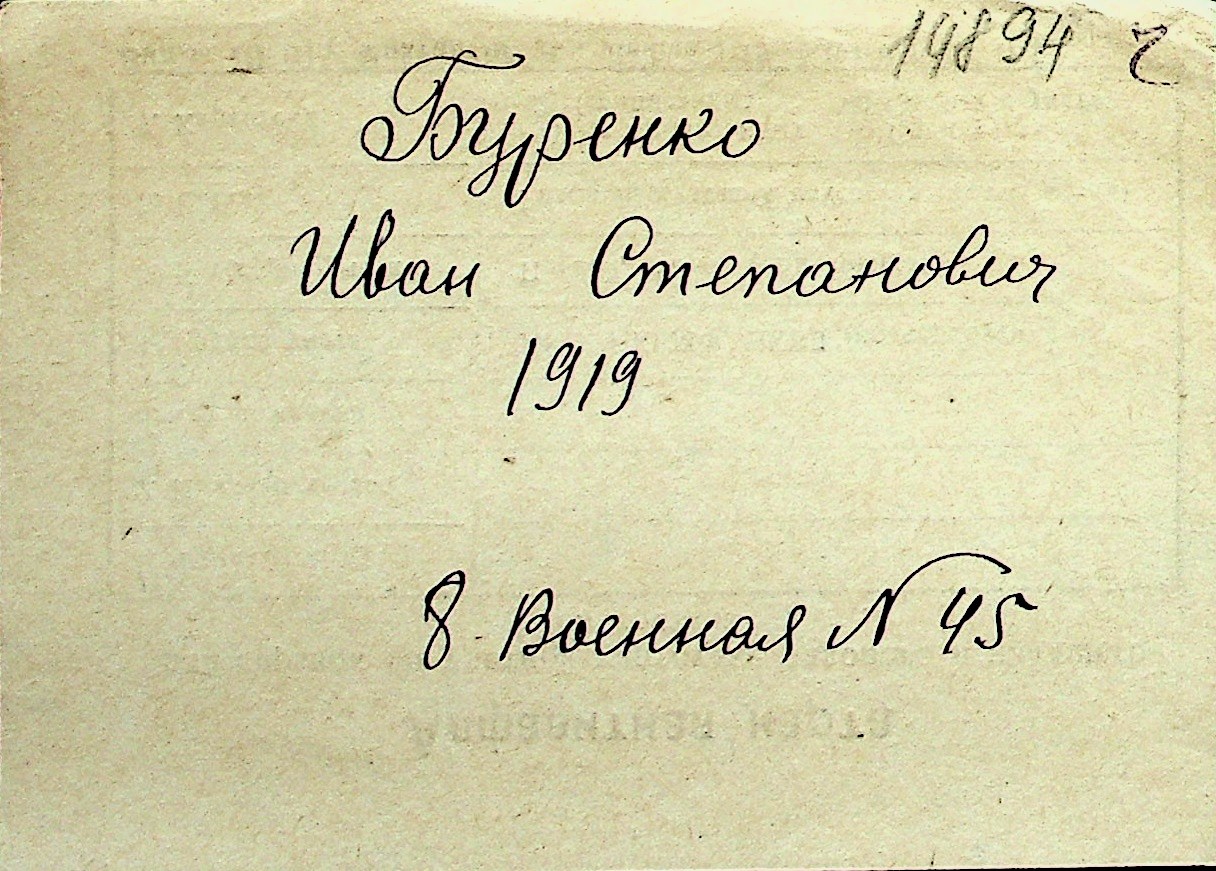 14894
Буренко
Иван Степанович
1919
8 Военная N 45